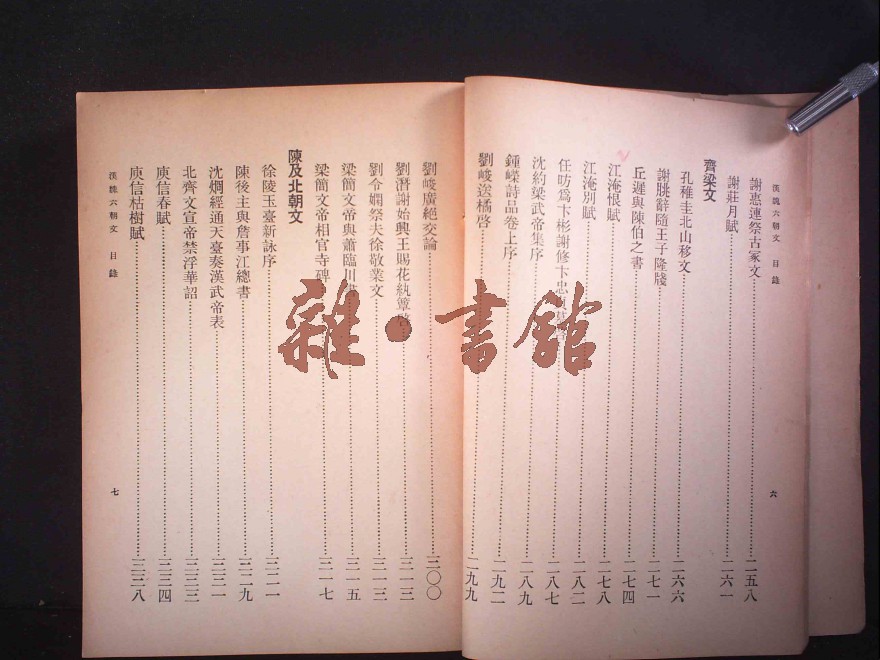 漢魏六朝文 目錄
六
謝惠連祭古冢文 二五八
謝莊月賦 二六一
齊梁文
孔稚圭北山移文 二六六
謝朓辭隨王子隆牋 二七一
丘遲與陳伯之書 二七四
江淹恨賦 二七八
江淹別賦 二八二
任昉爲卞彬謝修卞忠 二八七
沈約梁武帝集序 二八九
鍾嶸詩品卷上序 二九二
劉峻送橘啓 二九九
劉峻廣絕交論 三〇〇
劉潛謝始興王賜花紈簟 三一三
劉令嫻祭夫徐敬業文 三一三
梁簡文帝與蕭臨川書 三一五
梁簡文帝相官寺碑 三一七
陳及北朝文
徐陵玉臺新詠序 三二一
陳後主與詹事江總書 三二九
沈烱經通天臺奏漢武帝表 三三一
北齊文宣帝禁浮華詔 三三三
庾信春賦 三三四
庾信枯樹賦 三三八
漢魏六朝文 目錄
七
雜·書館